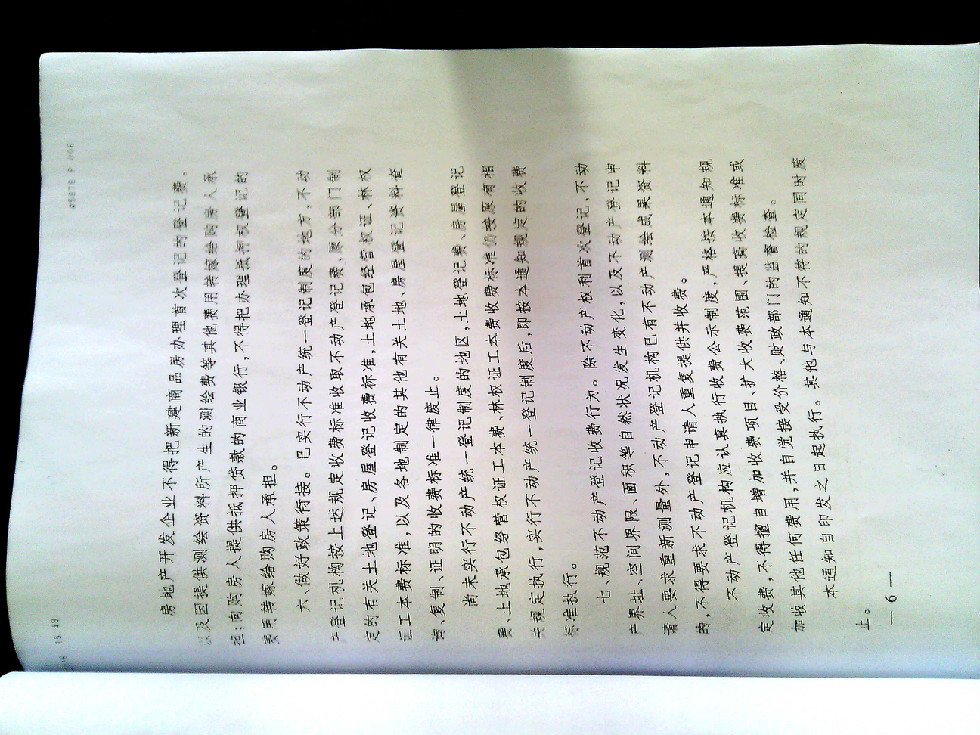 房地产开发企业不得把新建商品房办理首次登记的登记费，
以及因提供测绘资料所产生的测绘费等其他费用转嫁给购房人承
担；向购房人提供抵押贷款的商业银行，不得把办理抵押权登记的
费用转嫁给购房人承担。
六、做好政策衔接。已实行不动产统一登记制度的地方，不动
产登记机构按上述规定收费标准收取不动产登记费、原分部门制
定的有关土地登记、房屋登记收费标准，土地承包经营权证、林权
证工本费标准，以及各地制定的其他有关土地、房屋登记资料查
询、复制、证明的收费标准一律废止。
尚未实行不动产统一登记制度的地区，土地登记费、房屋登记
费、土地承包经营权证工本费、林权证工本费收费标准仍按原有相
关规定执行，实行不动产统一登记制度后，即按本通知规定的收费
标准执行。
七、规范不动产登记收费行为。除不动产权利首次登记，不动
产界址、空间界限、面积等自然状况发生变化，以及不动产登记申
请人要求重新测量外，不动产登记机构已有不动产测绘成果资料
的，不得要求不动产登记申请人重复提供并收费。
不动产登记机构应认真执行收费公示制度，严格按本通知规
定收费，不得擅自增加收费项目、扩大收费范围、提高收费标准或
加收其他任何费用，并自觉接受价格、财政部门的监督检查。
本通知自印发之日起执行。其他与本通知不符的规定同时废
止。
— 6 —